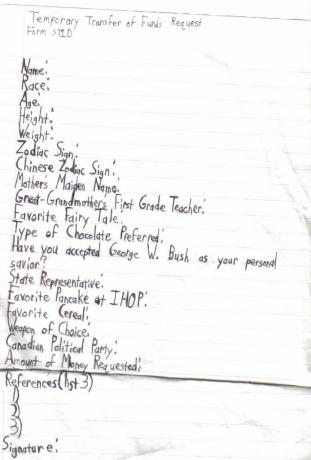 Temporary Transfer of Funds Request
Form S71D
Name:
Race:
Age:
Height:
Weight:
Zodiac Sign:
Chinese Zodiac Sign:
Mother's Maiden Name:
Great-Grandmother's First Grade Teacher:
Favorite Fairy Tale:
Type of Chocolate Preferred:
Have you accepted George W. Bush as your personal
savior?
State Representative:
Favorite Pancake at IHOP:
Favorite Cereal:
Weapon of Choice:
Canadian Political Party:
Amount of Money Requested:
References (list 3)
1)
2)
3)
Signature: